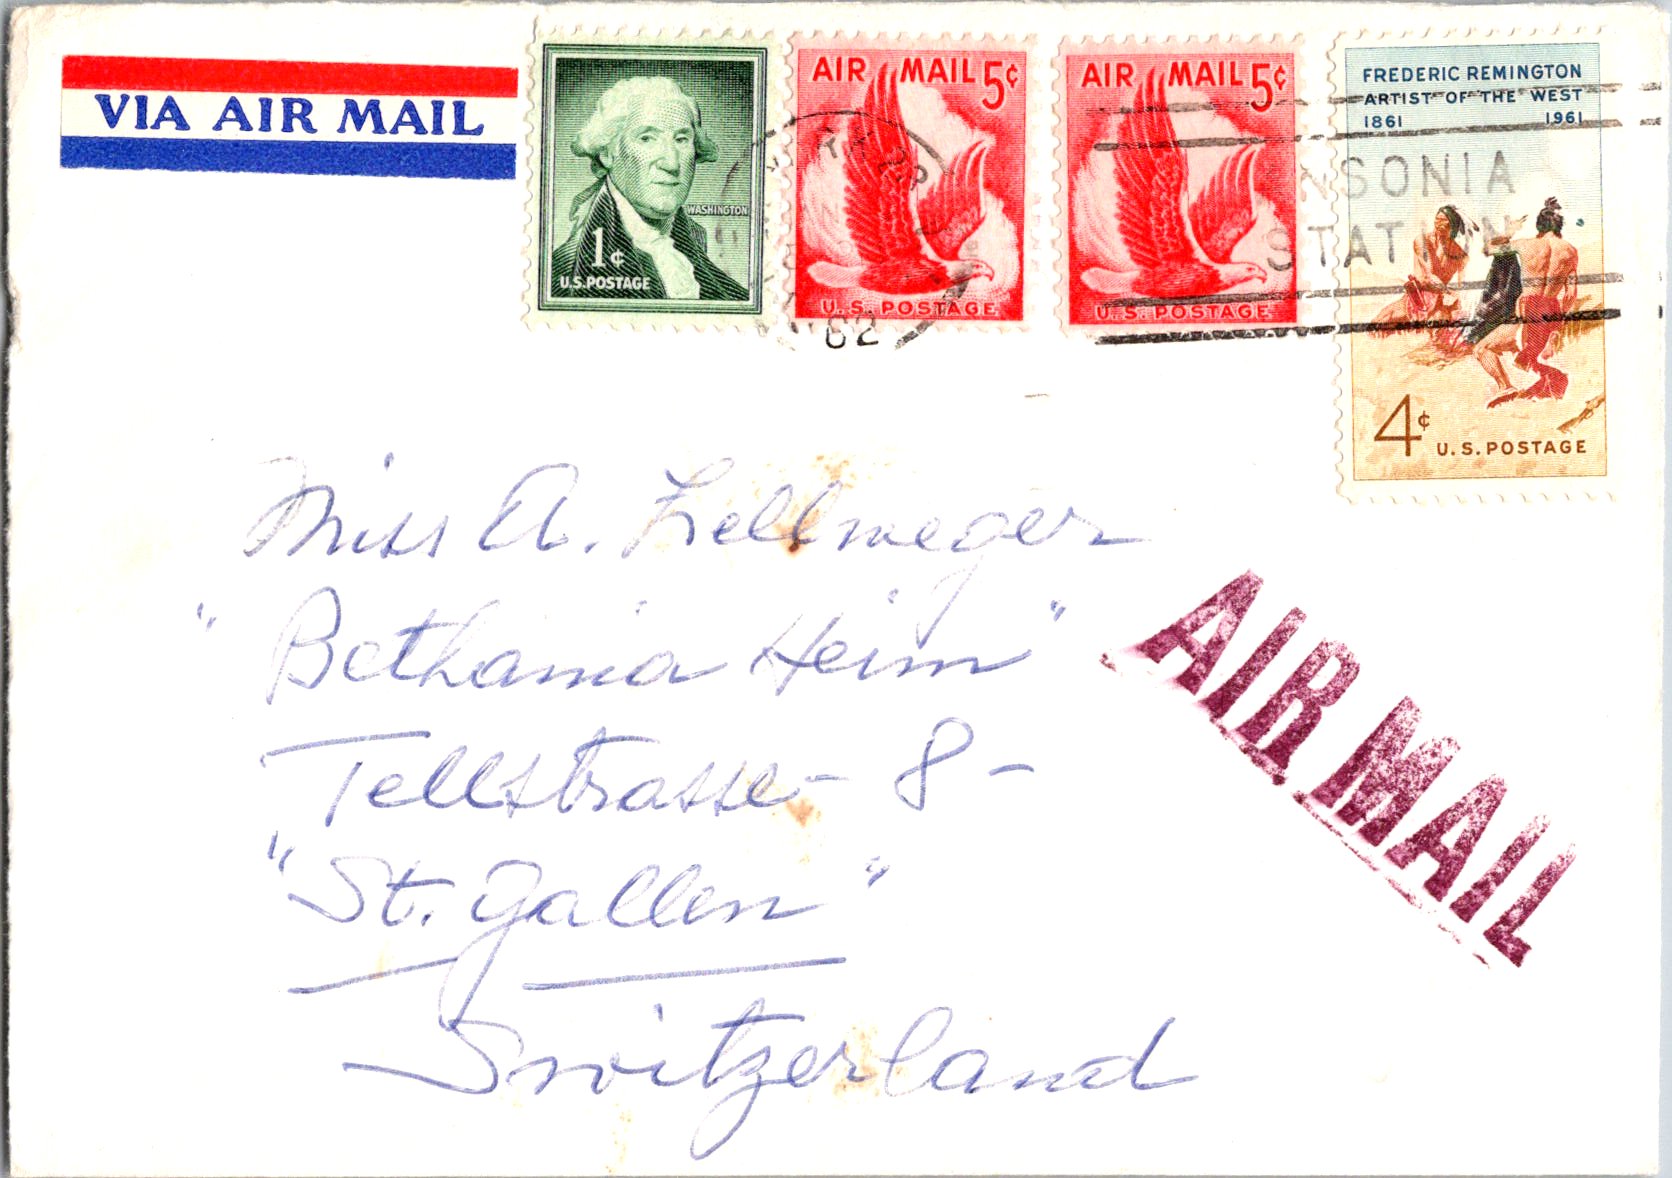 VIA AIR MAIL
WASHINGTON
1¢
U.S. POSTAGE
AIR MAIL 5¢
U.S. POSTAGE
AIR MAIL 5¢
U.S. POSTAGE
FREDERIC REMINGTON
ARTIST OF THE WEST
1861 1961
4¢ U.S. POSTAGE
NSONIA
STATION
62
Miss A. Zellweger
"Bethania Heim"
Tellstrasse - 8 -
"St. Gallen"
Switzerland
AIR MAIL